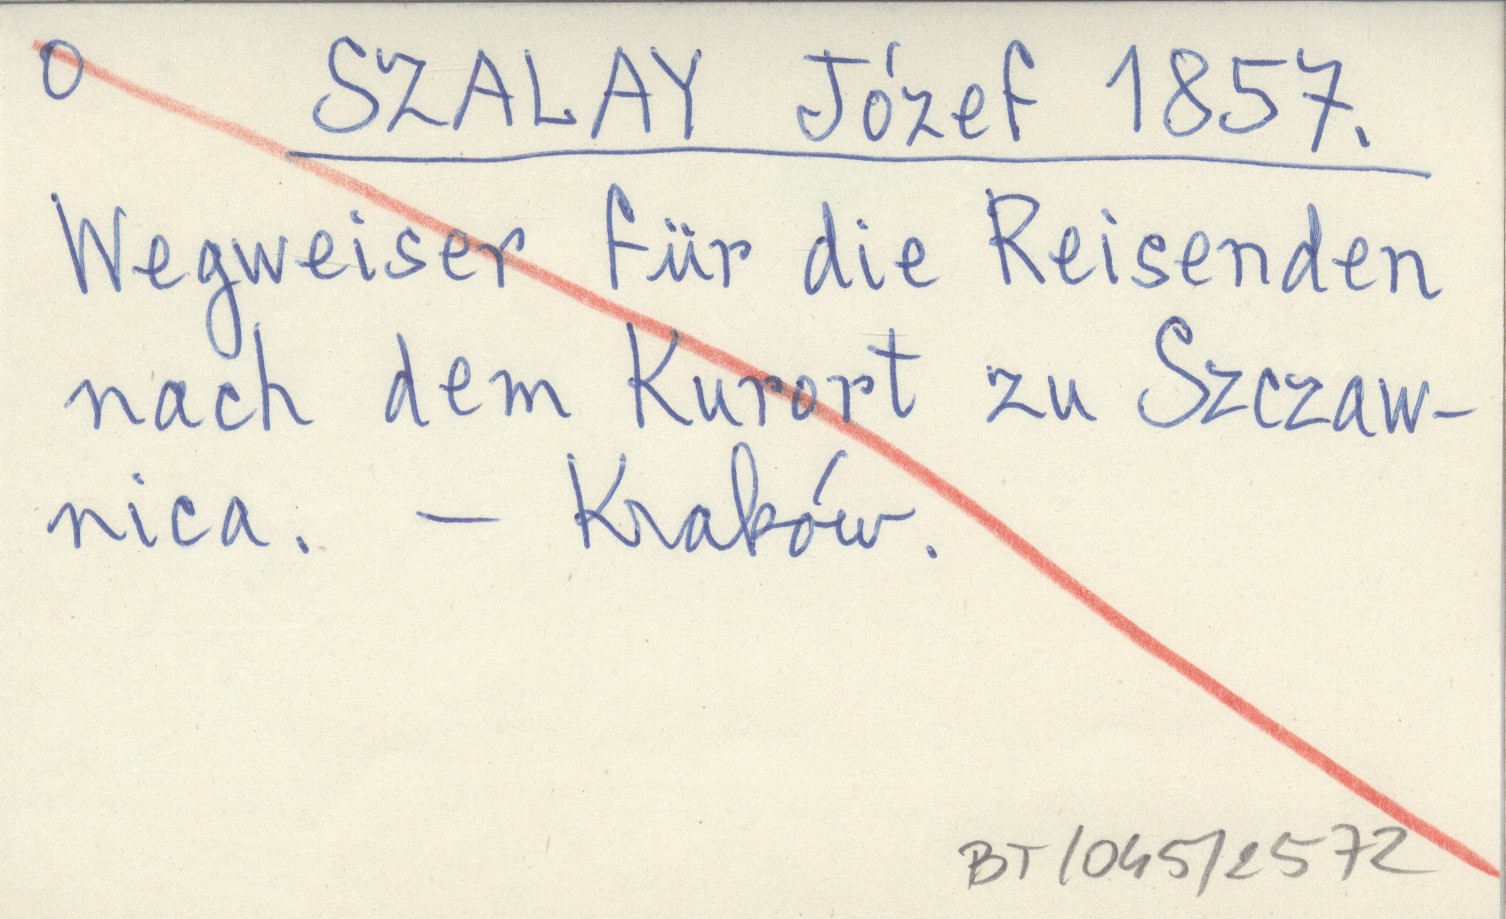 O SZALAY Józef 1857.
Wegweiser für die Reisenden
nach dem Kurort zu Szczaw-
nica. — Kraków.
BT/045/2572